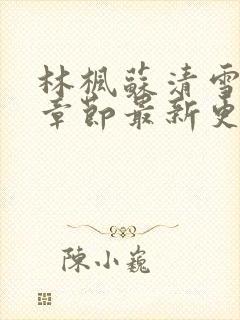 林楓蘇清雪
章節最新更
陳小巍